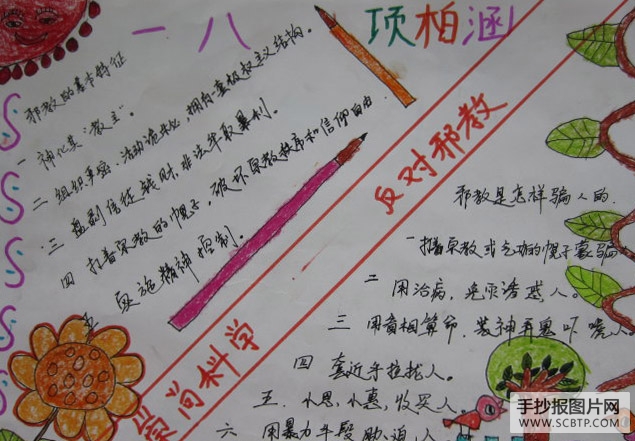 一八 项柏涵
邪教的基本特征
一 神化其"教主"。
二 组织严密,活动诡秘,拥有一套极权主义结构。
三 盘剥信徒钱财,非法牟取暴利。
四 打着宗教的幌子,破坏宗教秩序和信仰自由
五 实施精神控制。
崇尚科学 反对邪教
邪教是怎样骗人的.
一 打着宗教或气功的幌子蒙骗
二 用治病,免灾诱惑人。
三 用看相算命,装神弄鬼吓唬人
四 套近乎拉拢人。
五.小恩,小惠,收买人。
六 用暴力手段胁迫人
手抄报图片网
WWW.SCBTP.COM